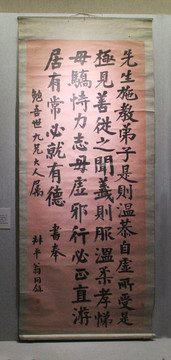 先生施教弟子是則溫恭自虛所受是
極見善從之聞義則服溫柔孝悌
毋驕恃力志毋虛邪行必正直游
居有常必就有德 書奉
勉吾世九兄大人属
翁同龢